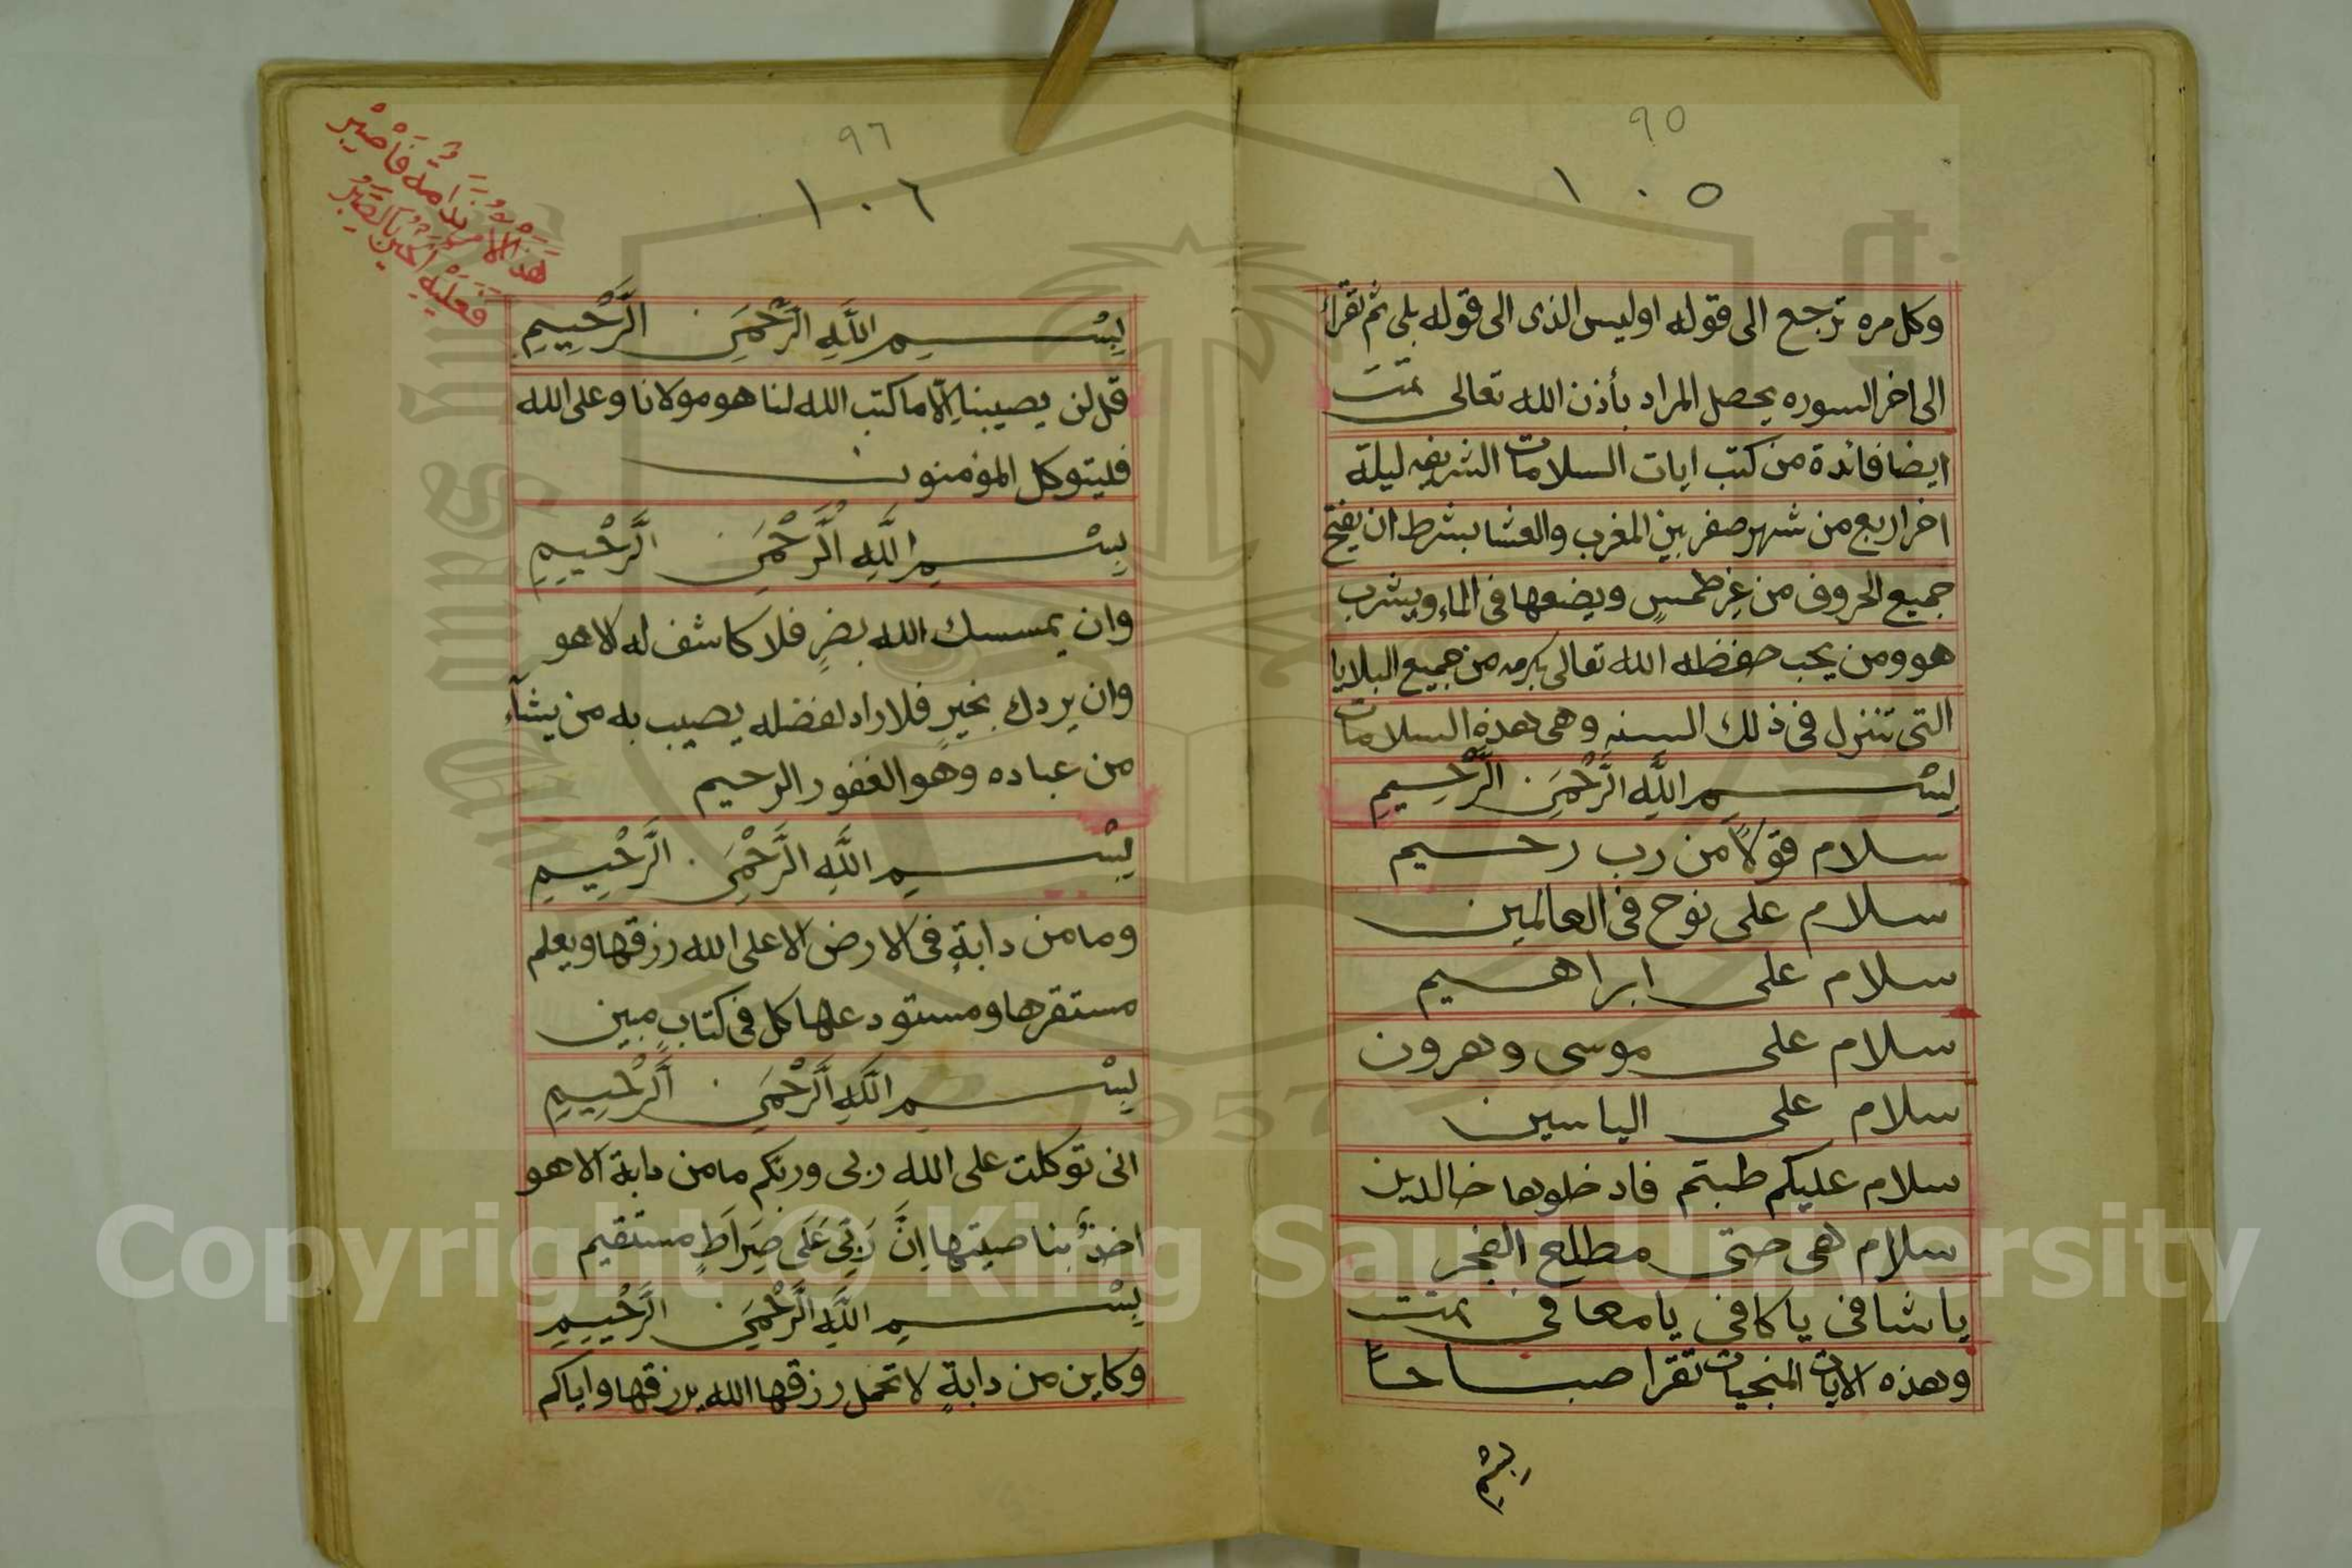 ٩٥
١٠٥
وكل مره ترجع الى قوله اوليس الذى الى قوله بلى ثم تقرأ
الى اخر السوره يحصل المراد بأذن الله تعالى تمت
ايضا فائدة من كتب ايات السلامات الشريفه ليلة
اخر اربع من شهر صفر بين المغرب والعشا بشرط ان يفتح
جميع الحروف من غير طمسٍ ويضعها فى الماء ويشرب
هو ومن يحب حفظه الله تعالى بكرمه من جميع البلايا
التى تنزل فى ذلك السنه وهى هذه السلامات
بِسْمِ اللَّهِ الرَّحْمَنِ الرَّحِيمِ
سلام قولاً من رب رحيم
سلام على نوح فى العالمين
سلام على ابراهيم
سلام على موسى وهرون
سلام على الياسين
سلام عليكم طبتم فادخلوها خالدين
سلام هى حتى مطلع الفجر
يا شافى يا كافى يا معافى تمت
وهذه الايات المنجيات تقرا صباحاً
بسم
٩٦
١٠٦
فَاصْبِرْ
بِسْمِ اللَّهِ الرَّحْمَنِ الرَّحِيمِ
قل لن يصيبنا إلّا ما كتب الله لنا هو مولانا وعلى الله
فليتوكل المؤمنون
بِسْمِ اللَّهِ الرَّحْمَنِ الرَّحِيمِ
وان يمسسك الله بضرٍ فلا كاشف له الا هو
وان يردك بخيرٍ فلا راد لفضله يصيب به من يشآء
من عباده وهو الغفور الرحيم
بِسْمِ اللَّهِ الرَّحْمَنِ الرَّحِيمِ
وما من دابةٍ فى الارض الا على الله رزقها ويعلم
مستقرها ومستودعها كل فى كتابٍ مبين
بِسْمِ اللَّهِ الرَّحْمَنِ الرَّحِيمِ
انى توكلت على الله ربى وربكم ما من دابة الا هو
اخذٌ بناصيتها اِنَّ رَبِّى عَلَى صِرَاطٍ مستقيم
بِسْمِ اللَّهِ الرَّحْمَنِ الرَّحِيمِ
وكاين من دابةٍ لا تحمل رزقها الله يرزقها واياكم
Copyright © King Saud University
1957